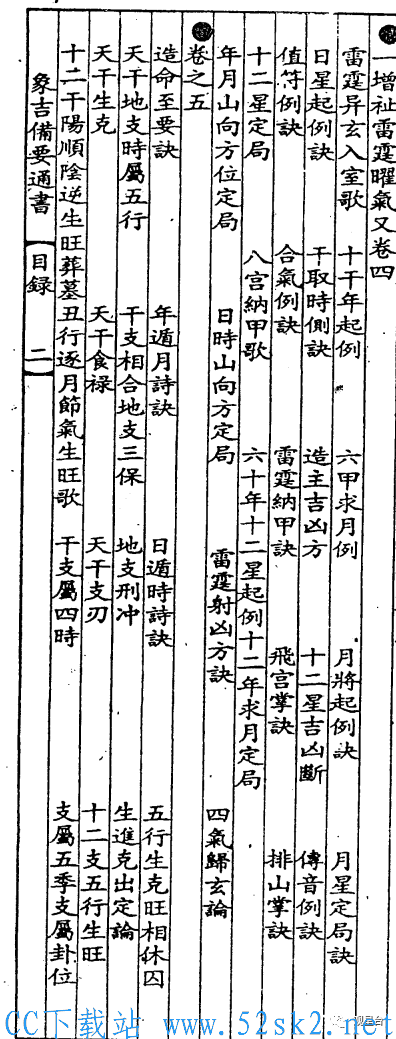 一增祉雷霆曜氣又卷四
雷霆异玄入室歌 十干年起例 六甲求月例 月將起例訣 月星定局訣
日星起例訣 干取時側訣 造主吉凶方 十二星吉凶斷 傳音例訣
值符例訣 合氣例訣 雷霆納甲訣 飛宮掌訣 排山掌訣
十二星定局 八宮納甲歌 六十年十二星起例十二年求月定局
年月山向方位定局 日時山向方定局 雷霆射凶方訣 四氣歸玄論
卷之五
造命至要訣 年遁月詩訣 日遁時詩訣 五行生克旺相休囚
天干地支時屬五行 干支相合地支三保 地支刑冲 生進克出定論
天干生克 天干食祿 天干支刃 十二支五行生旺
十二干陽順陰逆生旺葬墓丑行逐月節氣生旺歌 干支屬四時 支屬五季支屬卦位
象吉備要通書 【目錄 二】
CC下载站 www.52sk2.net